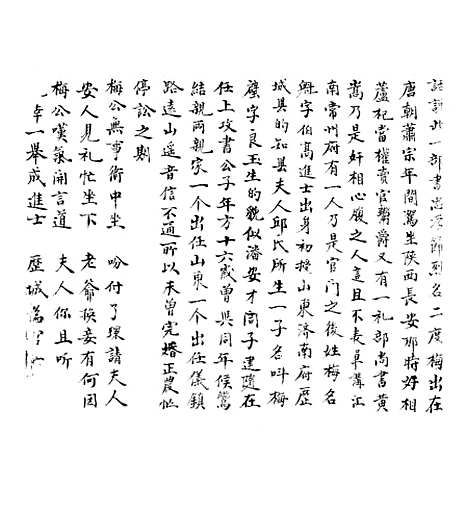 話說此一部書忠孝節烈名二度梅出在
唐朝蕭宗年間駕坐陕西長安那時好相
蘆杞當權賣官鬻爵又有一礼部尚書黄
嵩乃是奸相心腹之人這且不表單講江
南常州府有一人乃是官門之後姓梅名
魁字伯高進士出身初授山東济南府歷
城县的知县夫人邱氏所生一子名叫梅
璧字良玉生的貌似潘安才高子建隨在
任上攻書公子年方十六歲曾與同年侯鸞
結親兩親家一个出任山東一个出任儀鎮
路遠山遥音信不通所以未曾完婚正是農忙
停訟之期
梅公無事衙中坐 吩付了環請夫人
安人見礼忙坐下 老爺喚妾有何因
梅公嘆氣開言道 夫人你且听
一舉成進士 歷城為